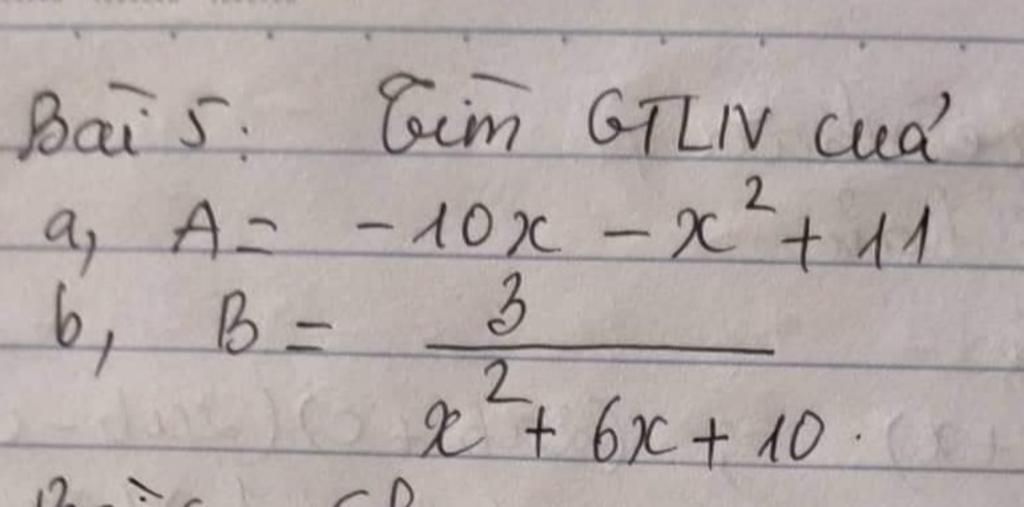 Bài 5: Tìm GTLN của
a, A = -10x - x² + 11
b, B = 3
x² + 6x + 10.